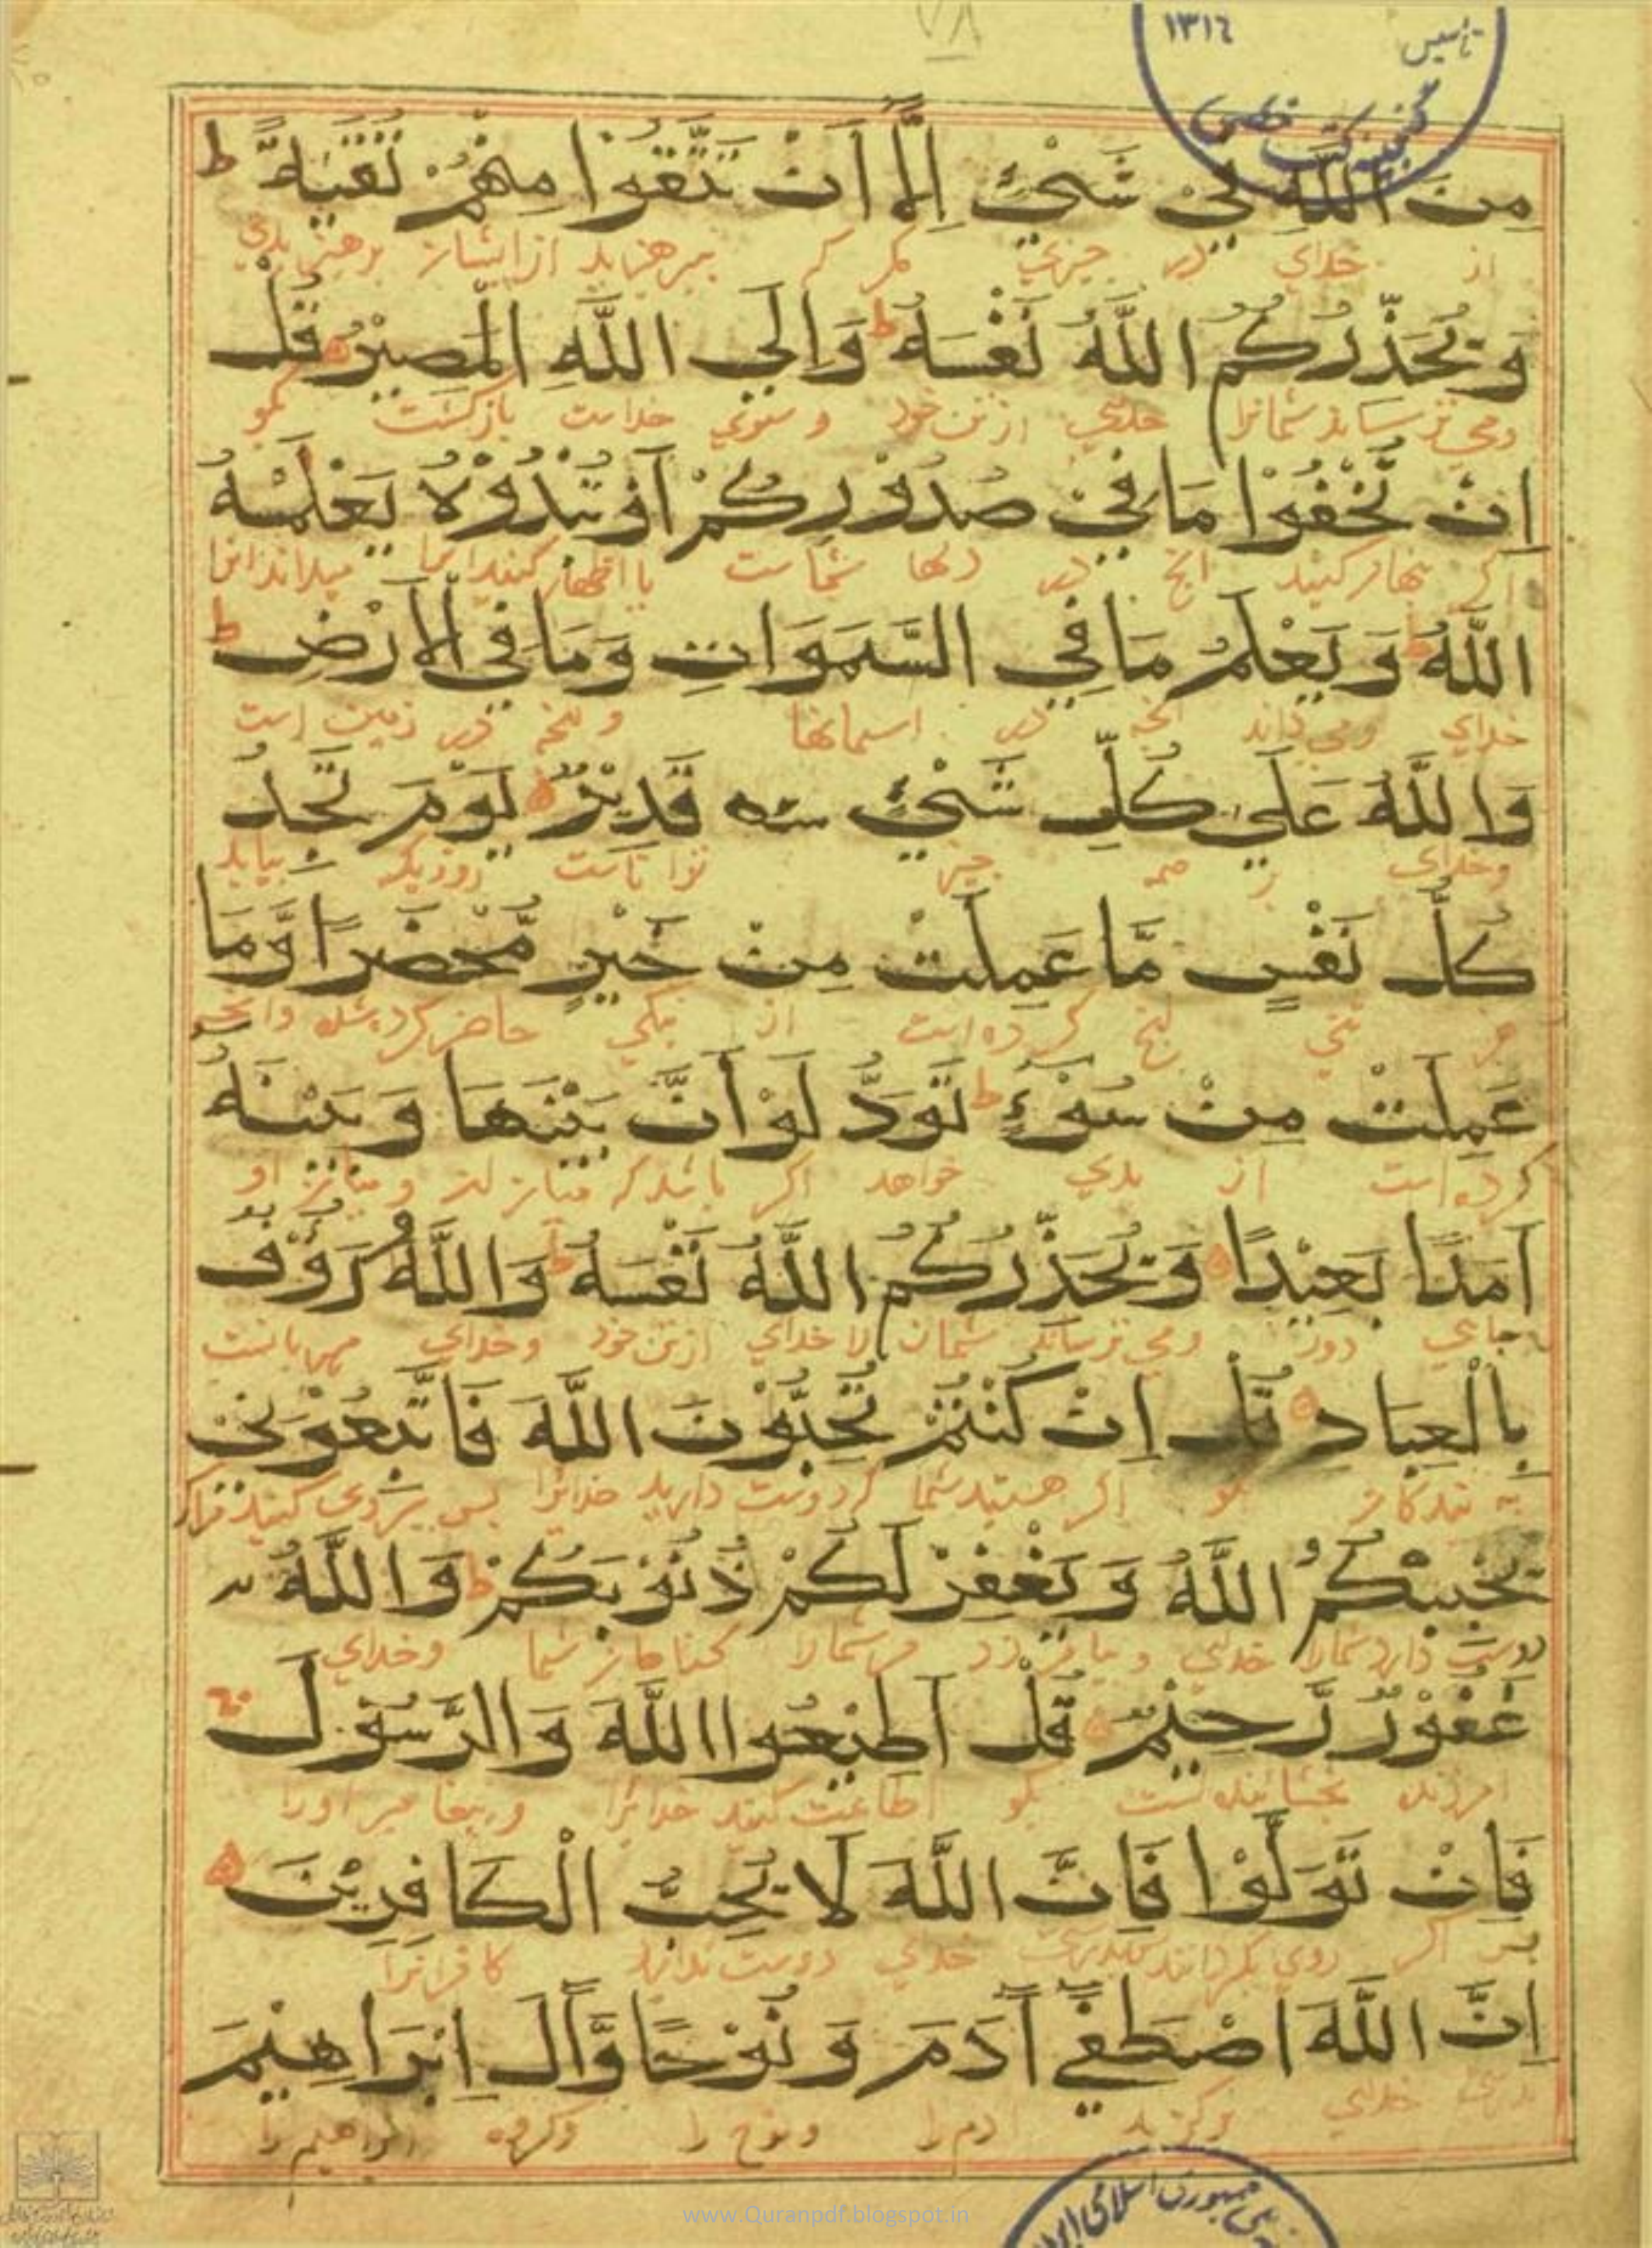 ٧٨
تاسیس ١٣١٦
گنجینه کتب خطی
مِنَ اللَّهِ فِيْ شَيْئٍ اِلَّا اَنْ تَتَّقُوْا مِنْهُمْ تُقٰيةً ط
از خدای در چیزی مگر که بپرهیزید از ایشان پرهیزیدنی
وَيُحَذِّرُكُمُ اللَّهُ نَفْسَهُ ط وَاِلَي اللَّهِ الْمَصِيْرُ قُلْ
ومی ترساند شمانرا خدای از تن خود و سوی خداست بازکشت بکو
اِنْ تُخْفُوْا مَا فِيْ صُدُوْرِكُمْ اَوْ تُبْدُوْهُ يَعْلَمْهُ
اکر پنهان کنید انچ در دلها شماست یا اظهار کنید انرا میداند انرا
اللَّهُ ط وَ يَعْلَمُ مَا فِي السَّمَوَاتِ وَمَا فِي الْاَرْضِ ط
خدای ومی داند انچه در اسمانها و انچه در زمین است
وَاللَّهُ عَلَيٰ كُلِّ شَيْئٍ قَدِيْرٌ يَوْمَ تَجِدُ
وخدای بر همه چیز توانا است روزیکه بیابد
كُلُّ نَفْسٍ مَّا عَمِلَتْ مِنْ خَيْرٍ مُّحْضَرًا وَّمَا
هر تنی انچ کرده است از نیکی حاضر کرد شده وانچه
عَمِلَتْ مِنْ سُوْءٍ ط تَوَدُّ لَوْ اَنَّ بَيْنَهَا وَ بَيْنَهُ
کرده است از بدی خواهد اکر باشد که میان ان و میان او
اَمَدًا بَعِيْدًا وَ يُحَذِّرُكُمُ اللَّهُ نَفْسَهُ ط وَاللَّهُ رَؤُفٌ
دور ومی ترساند شمان را خدای از تن خود وخدای مهربانست
بِالْعِبَادِ قُلْ اِنْ كُنْتُمْ تُحِبُّوْنَ اللَّهَ فَاتَّبِعُوْنِيْ
به بندکان بکو اکر هستید شما که دوست دارید خدایرا پس پیروی کنید مرا
يُحْبِبْكُمُ اللَّهُ وَ يَغْفِرْ لَكُمْ ذُنُوْبَكُمْ ط وَاللَّهُ
دوست دارد شمارا خدای و بیامرزد مر شمارا کناهان شما وخدای
غَفُوْرٌ رَّحِيْمٌ قُلْ اَطِيْعُوا اللَّهَ وَالرَّسُوْلَ
امرزنده بخشاینده است بکو اطاعت کنید خدایرا و پیغامبر اورا
فَاِنْ تَوَلَّوْا فَاِنَّ اللَّهَ لَا يُحِبُّ الْكَافِرِيْنَ
پس اکر روی بکردانند بدرستی خدای دوست ندارد کافرانرا
اِنَّ اللَّهَ اصْطَفٰيٓ اٰدَمَ وَ نُوْحًا وَّاٰلَ اِبْرَاهِيْمَ
بدرستی خدای برکزید ادم را ونوح را وکروه ابراهیم را
جمهوری اسلامی ایران
www.Quranpdf.blogspot.in